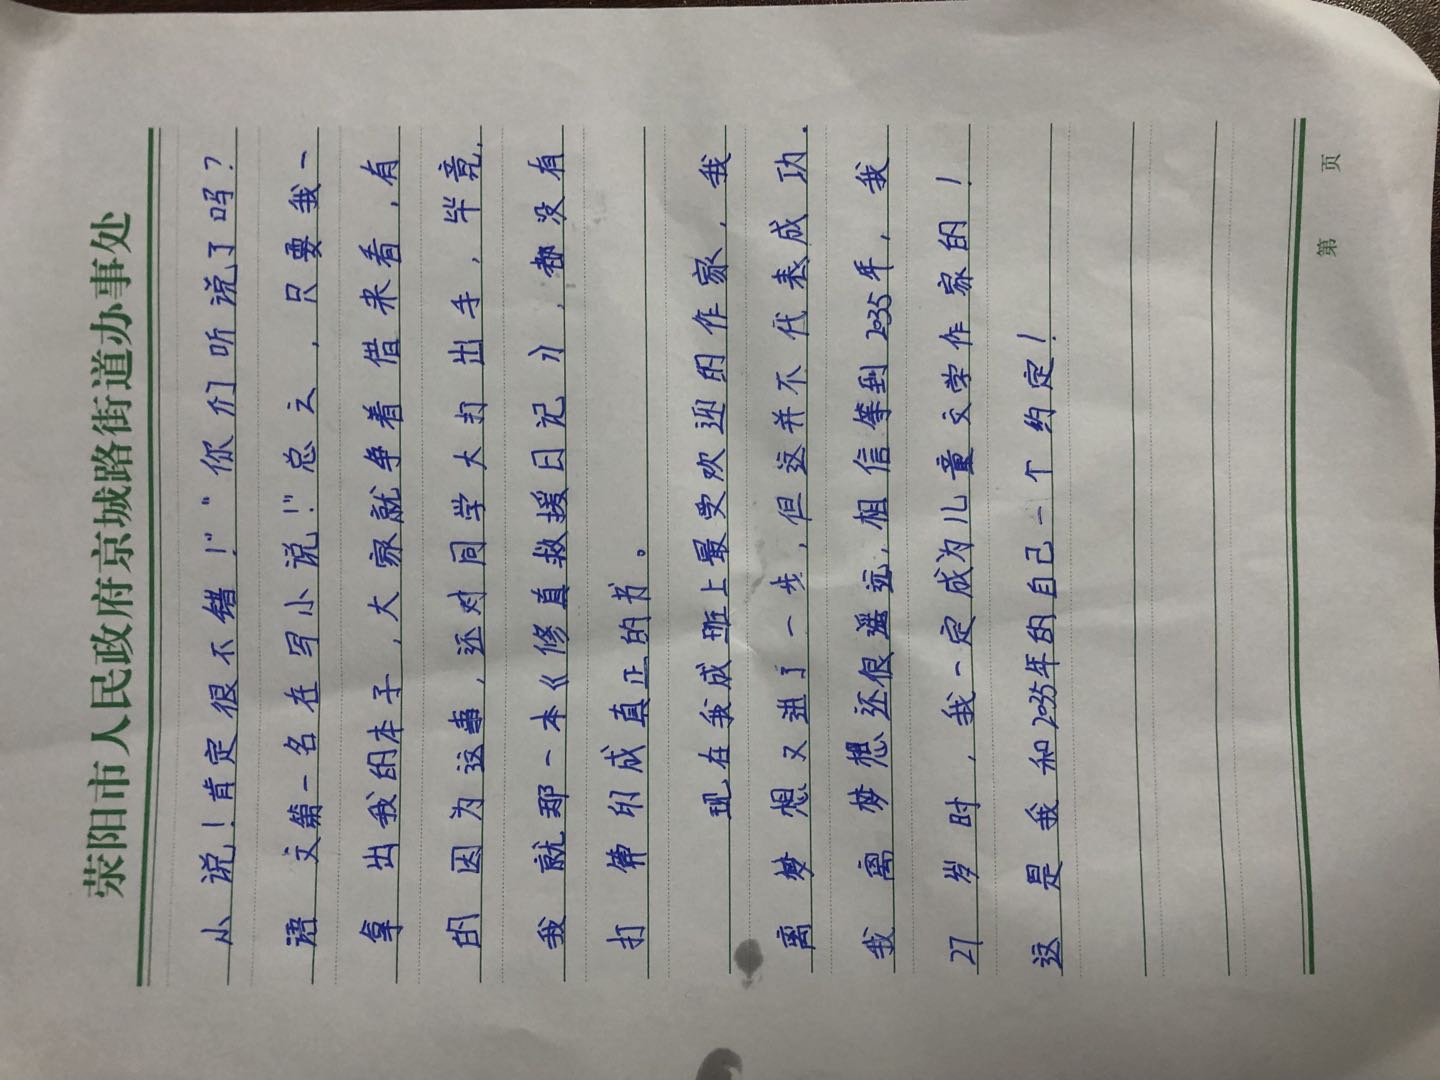 荥阳市人民政府京城路街道办事处
小说！肯定很不错！”“你们听说了吗？
语文第一名在写小说！”总之，只要我一
拿出我的本子，大家就争着借来看，有
的因为这事，还对同学大打出手，毕竟，
我就那一本《修真救援日记》，都没有
打算印成真正的书。
现在我成班上最受欢迎的作家，我
离梦想又进了一步，但这并不代表成功．
我离梦想还很遥远，相信等到2035年，我
27岁时，我一定成为儿童文学作家的！
这是我和2035年的自己一个约定！
第 页